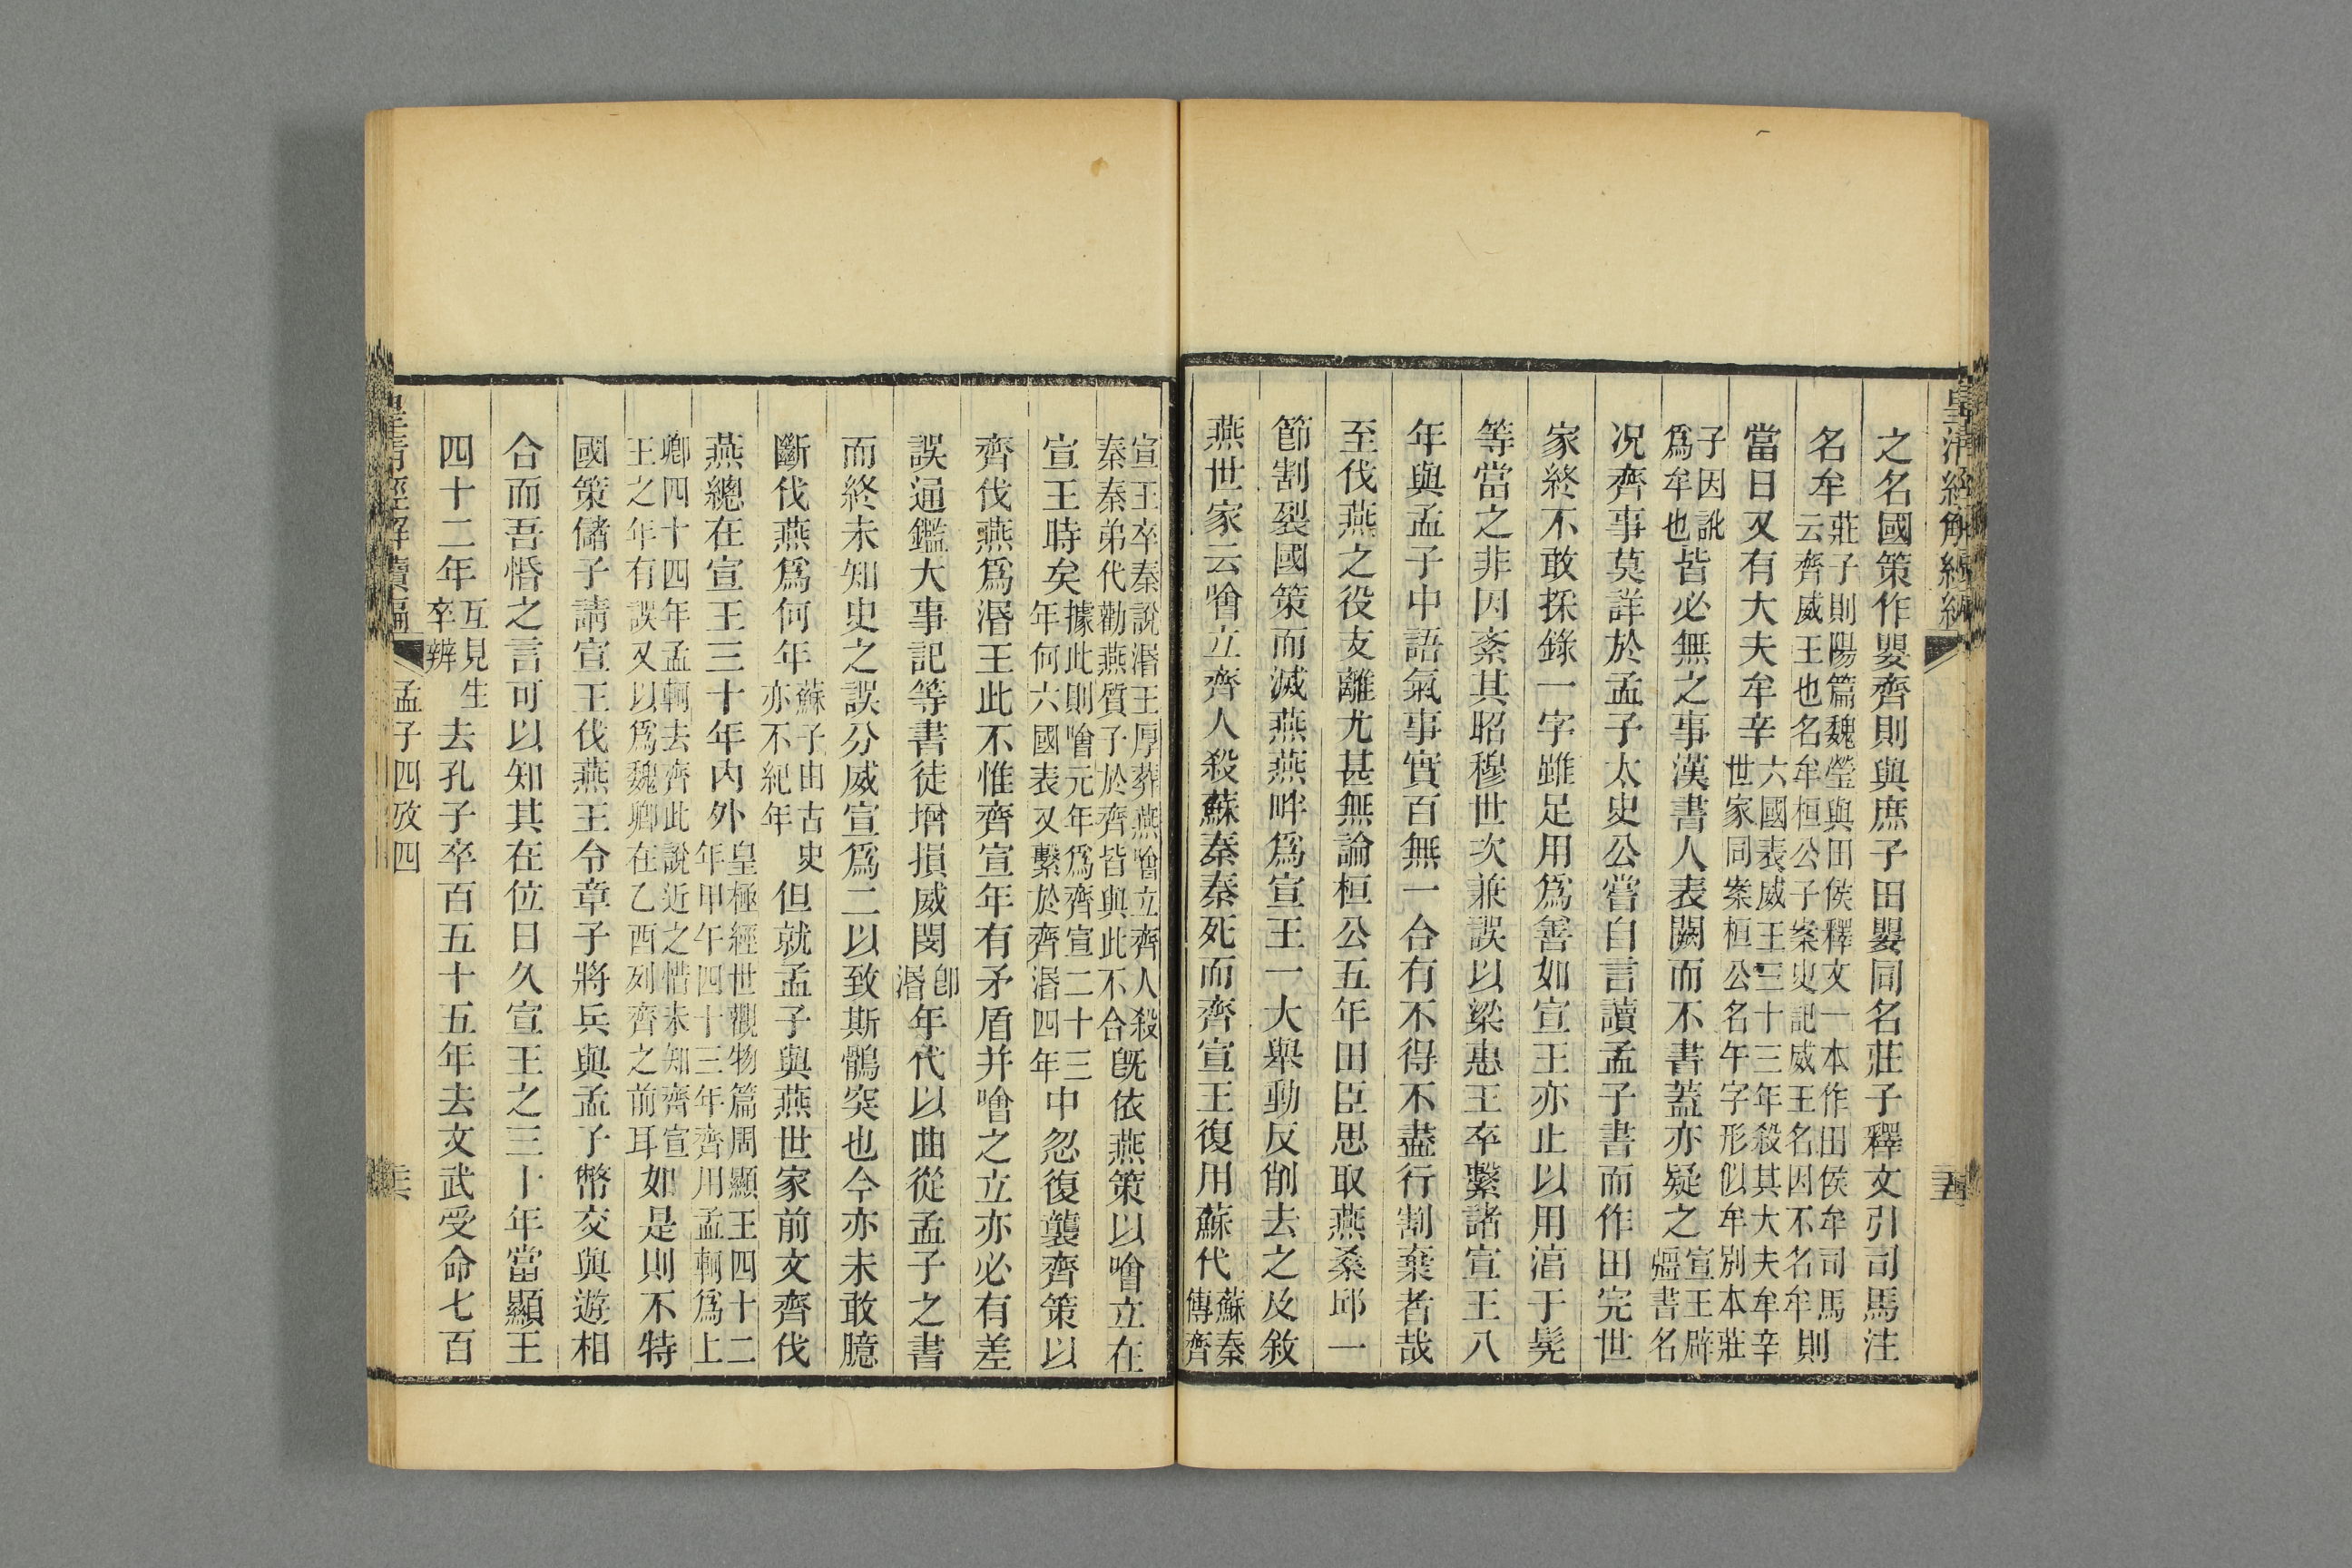 皇清經解續編
之名國策作嬰齊則與庶子田嬰同名莊子釋文引司馬注
名牟莊子則陽篇魏瑩與田侯釋文一本作田侯牟司馬云齊威王也名牟桓公子案史記威王名因不名牟則
當日又有大夫牟辛六國表威王三十三年殺其大夫牟辛世家同案桓公名午字形似牟別本莊
子因訛爲牟也皆必無之事漢書人表闕而不書蓋亦疑之宣王辟彊書名
况齊事莫詳於孟子太史公嘗自言讀孟子書而作田完世
家終不敢採錄一字雖足用爲善如宣王亦止以用湻于髡
等當之非因紊其昭穆世次兼誤以梁惠王卒繫諸宣王八
年與孟子中語氣事實百無一合有不得不盡行割棄者哉
至伐燕之役支離尤甚無論桓公五年田臣思取燕桑邱一
節割裂國策而滅燕燕畔爲宣王一大舉動反削去之及敘
燕世家云噲立齊人殺蘇秦秦死而齊宣王復用蘇代蘇秦傳齊
宣王卒秦說湣王厚葬燕噲立齊人殺秦秦弟代勸燕質子於齊皆與此不合旣依燕策以噲立在
宣王時矣據此則噲元年爲齊宣二十三年何六國表又繫於齊湣四年中忽復襲齊策以
齊伐燕爲湣王此不惟齊宣年有矛盾并噲之立亦必有差
誤通鑑大事記等書徒增損威閔卽湣年代以曲從孟子之書
而終未知史之誤分威宣爲二以致斯鶻突也今亦未敢臆
斷伐燕爲何年蘇子由古史亦不紀年但就孟子與燕世家前文齊伐
燕總在宣王三十年內外皇極經世觀物篇周顯王四十二年甲午四十三年齊用孟軻爲上
卿四十四年孟軻去齊此說近之惜未知齊宣王之年有誤又以爲魏卿在乙酉列齊之前耳如是則不特
國策儲子請宣王伐燕王令章子將兵與孟子幣交與遊相
合而吾惛之言可以知其在位日久宣王之三十年當顯王
四十二年互見生卒辨去孔子卒百五十五年去文武受命七百
皇清經解續編
孟子四攷四